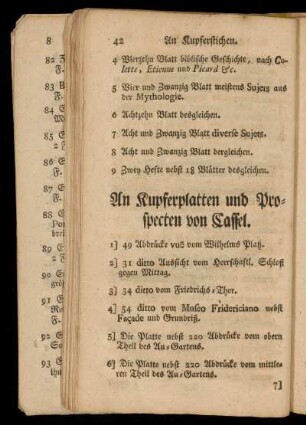 8
82
F.
83 B
F.
84 E
85 E
2 F
86 E
F.
87
F.
88
89
2 F
90
größ
91
F.
92
2 F
93 E
42 An Kupferstichen.
4 Vierzehn Blatt biblische Geschichte, nach Co-
lette, Etienne und Picard &c.
5 Vier und Zwanzig Blatt meistens Sujets aus
der Mythologie.
6 Achtzehn Blatt desgleichen.
7 Acht und Zwanzig Blatt diverse Sujets.
8 Acht und Zwanzig Blatt dergleichen.
9 Zwey Hefte nebst 18 Blätter desgleichen.
An Kupferplatten und Pro-
specten von Cassel.
1] 49 Abdrücke vom Wilhelms Platz.
2] 31 ditto Aussicht vom Herrschaftl. Schloß
gegen Mittag.
3] 34 ditto vom Friedrichs-Thor.
4] 54 ditto vom Museo Fridericiano nebst
Façade und Grundriß.
5] Die Platte nebst 220 Abdrücke vom obern
Theil des Au-Gartens.
6] Die Platte nebst 220 Abdrücke vom mittle-
ren Theil des Au-Gartens.
7]